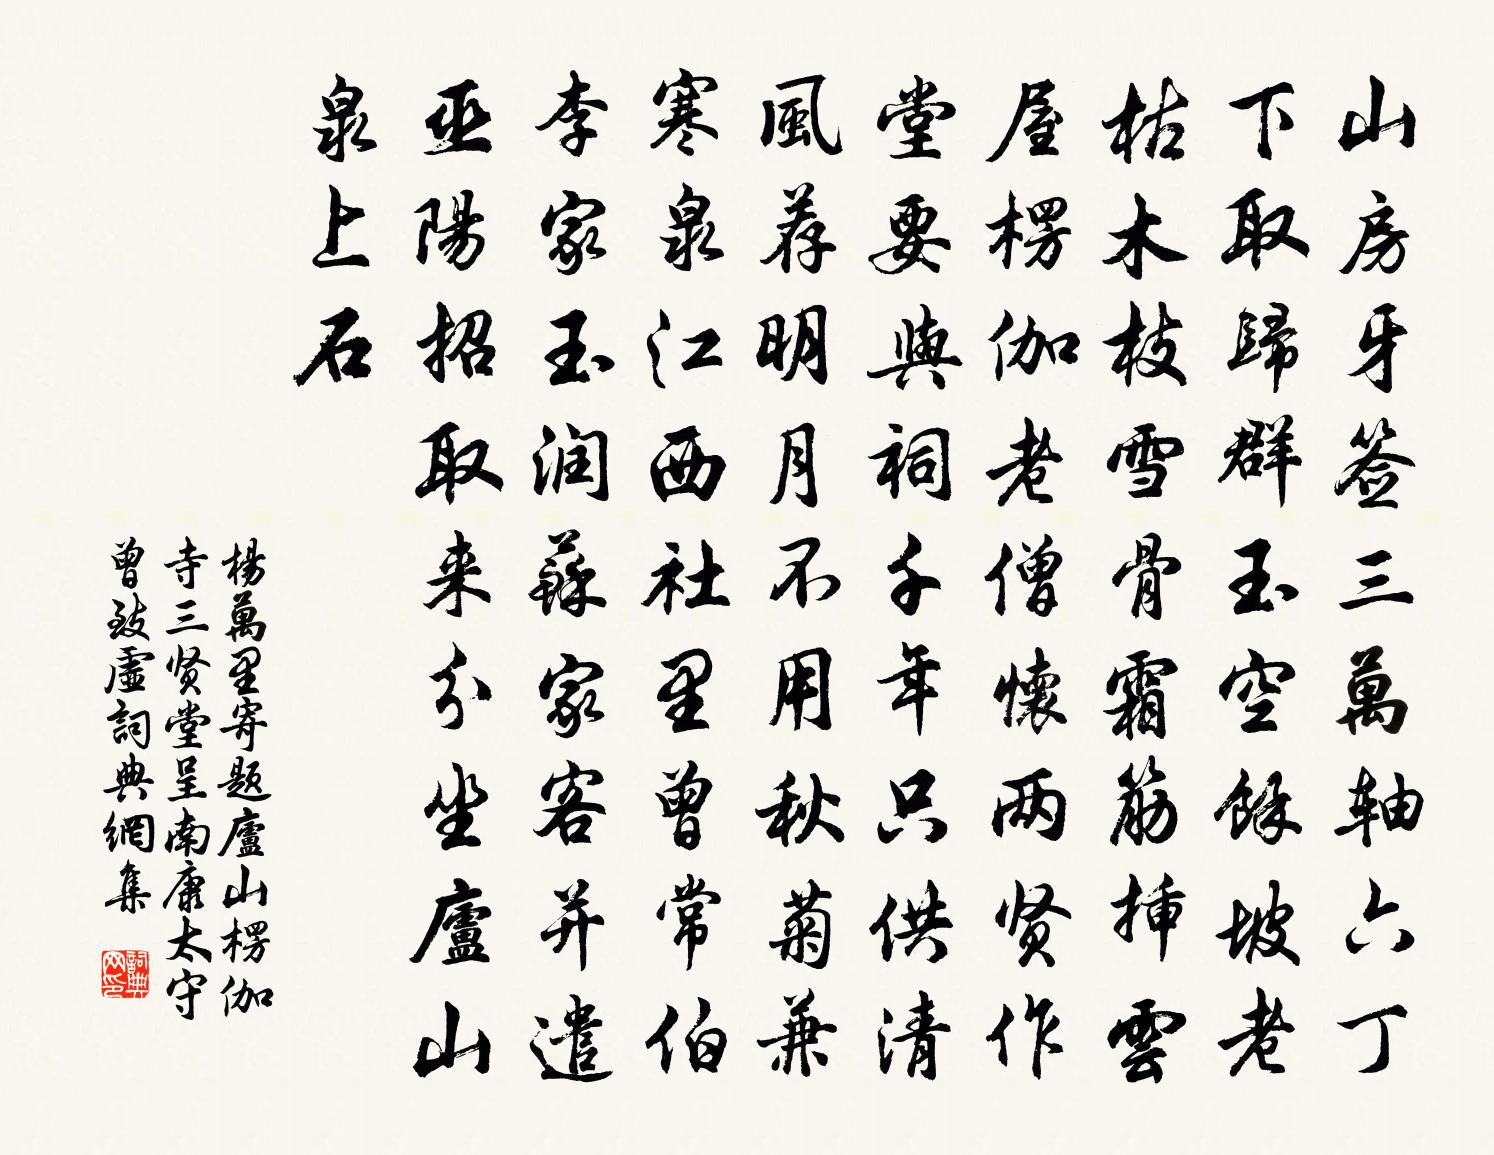 山房牙签三萬軸六丁
下取歸群玉空餘坡老
枯木枝雪骨霜筋挿雲
屋楞伽老僧懷两贤作
堂要與祠千年只供清
風荐明月不用秋菊兼
寒泉江西社里曾常伯
李家玉润蘇家客并遣
巫陽招取来分坐廬山
泉上石
楊萬里寄题廬山楞伽
寺三贤堂呈南康太守
曾致虛詞典網集
詞典网印